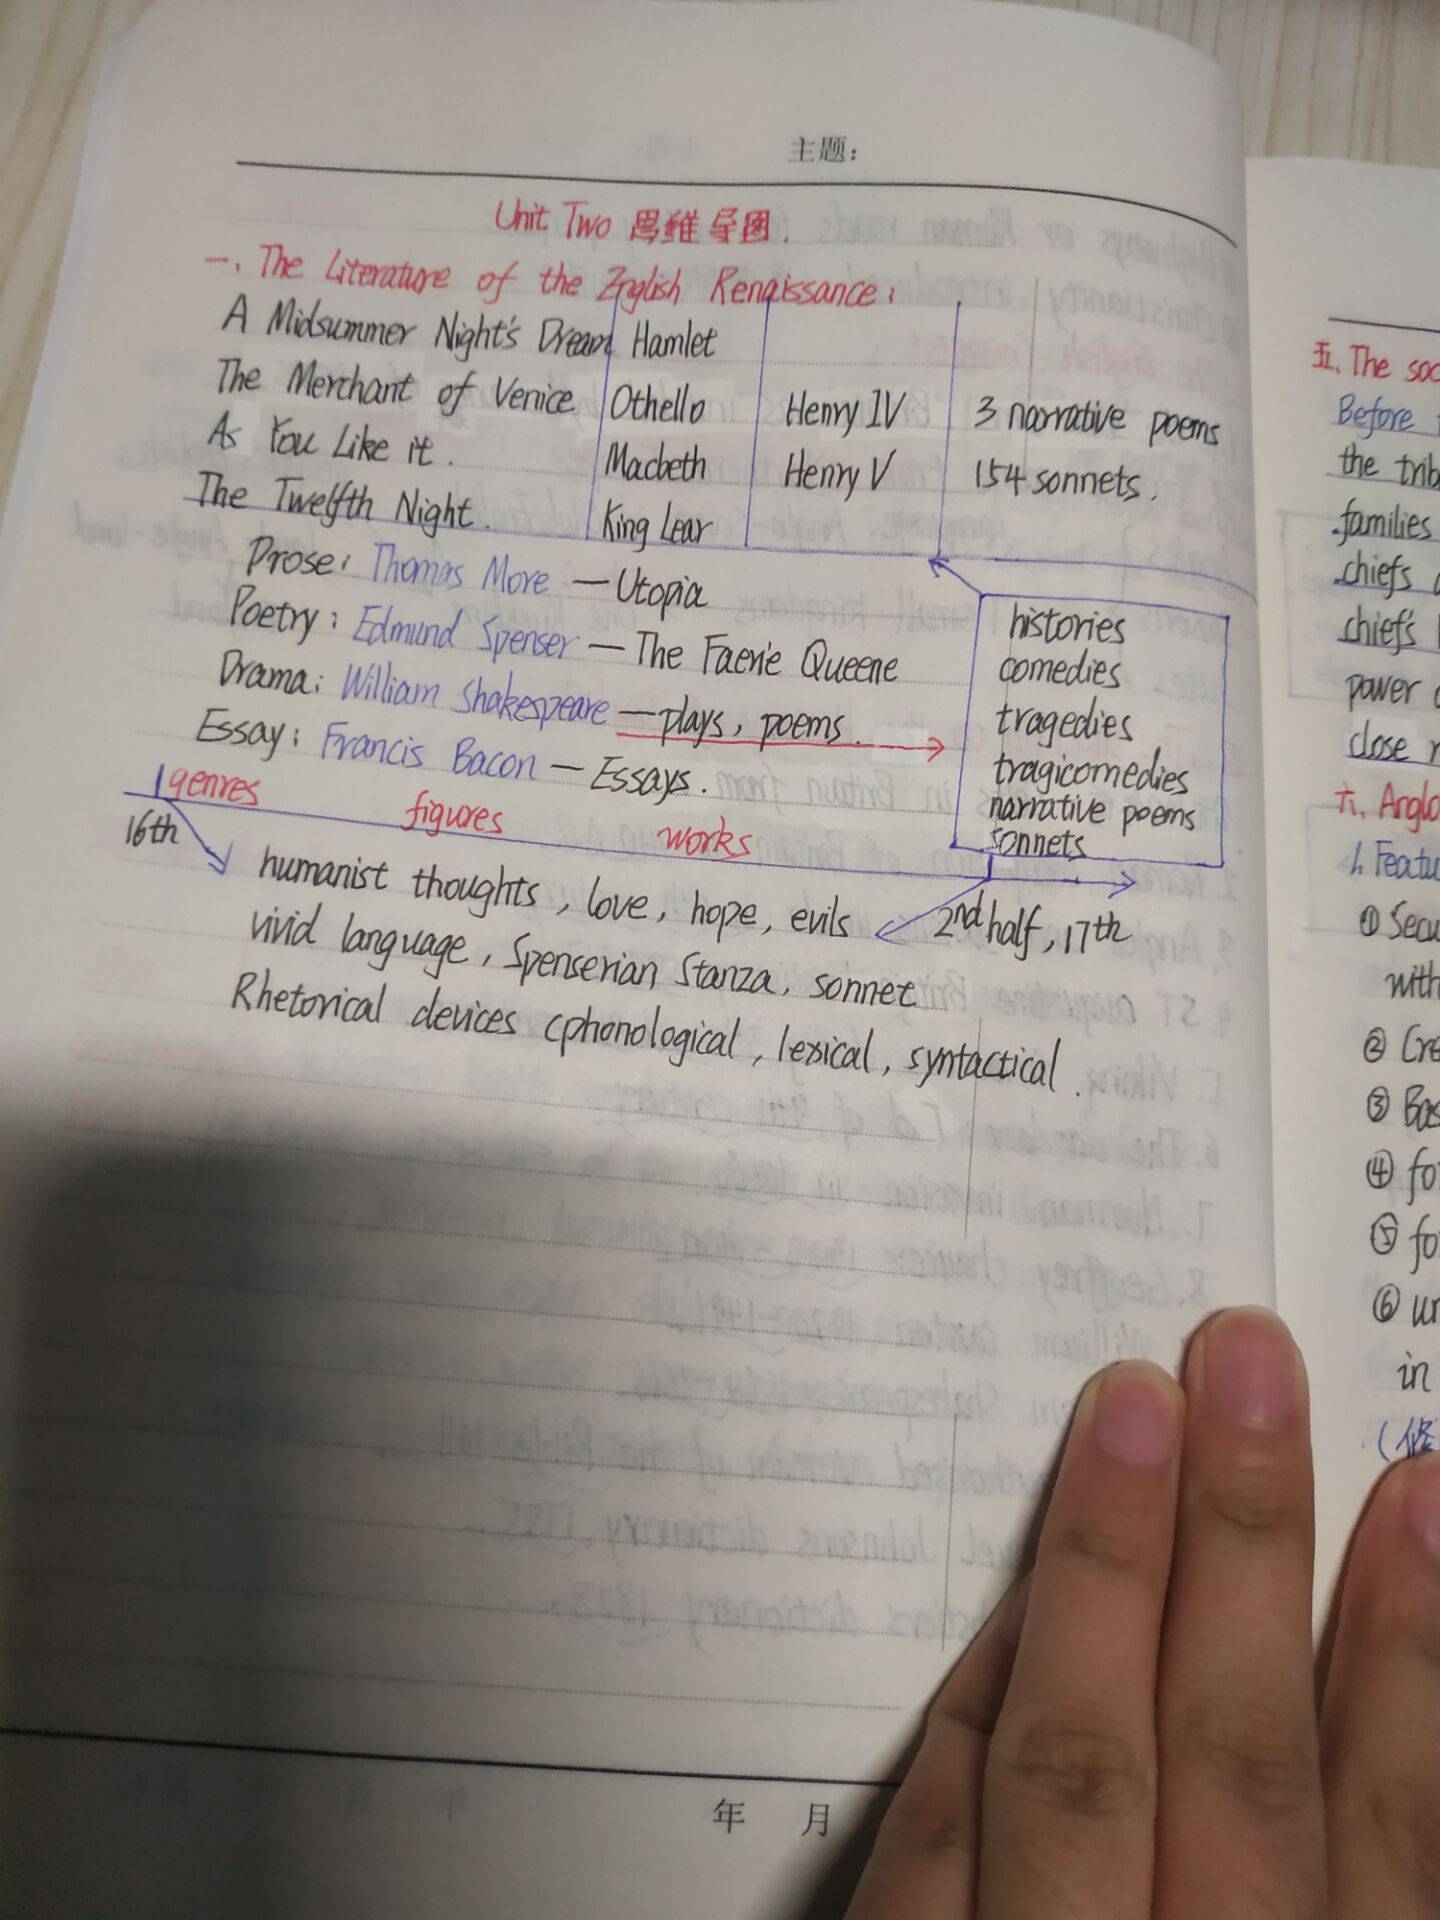 主题：
Unit Two 思维导图.
一、The Literature of the English Renaissance：
A Midsummer Night's Dream Hamlet
The Merchant of Venice Othello Henry IV 3 narrative poems
As You Like it. Macbeth Henry V 154 sonnets.
The Twelfth Night. King Lear
Prose: Thomas More — Utopia
Poetry: Edmund Spenser — The Faerie Queene
Drama: William Shakespeare — plays, poems.
Essay: Francis Bacon — Essays.
histories
comedies
tragedies
tragicomedies
narrative poems
sonnets
genres figures works
16th
2nd half, 17th
humanist thoughts, love, hope, evils
vivid language, Spenserian Stanza, sonnet
Rhetorical devices (phonological, lexical, syntactical.
年 月
五、The soc
Before
the trib
families
chiefs
chief's
power
close
六、Anglo
1. Featu
① Secu
with
② Cre
③ Bas
④ fo
⑤ fo
⑥ un
in
(修